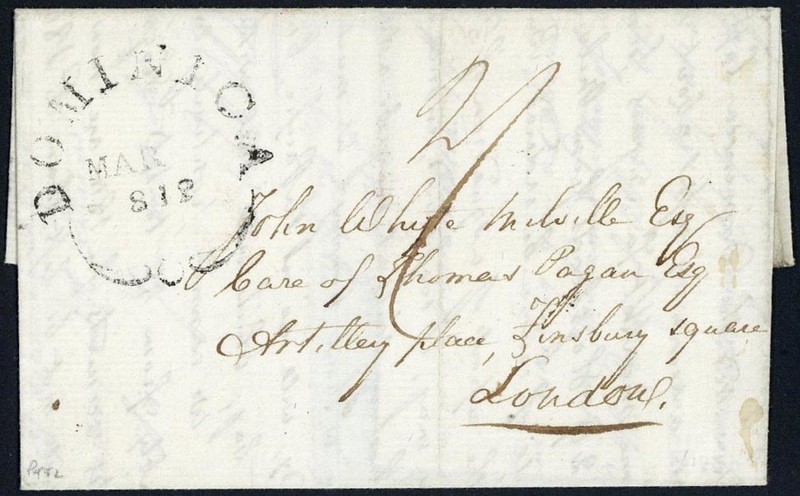 DOMINICA
MAR
812
2/
John White Melville Esq
Care of Thomas Pagan Esq
Artillery place, Finsbury square
London.